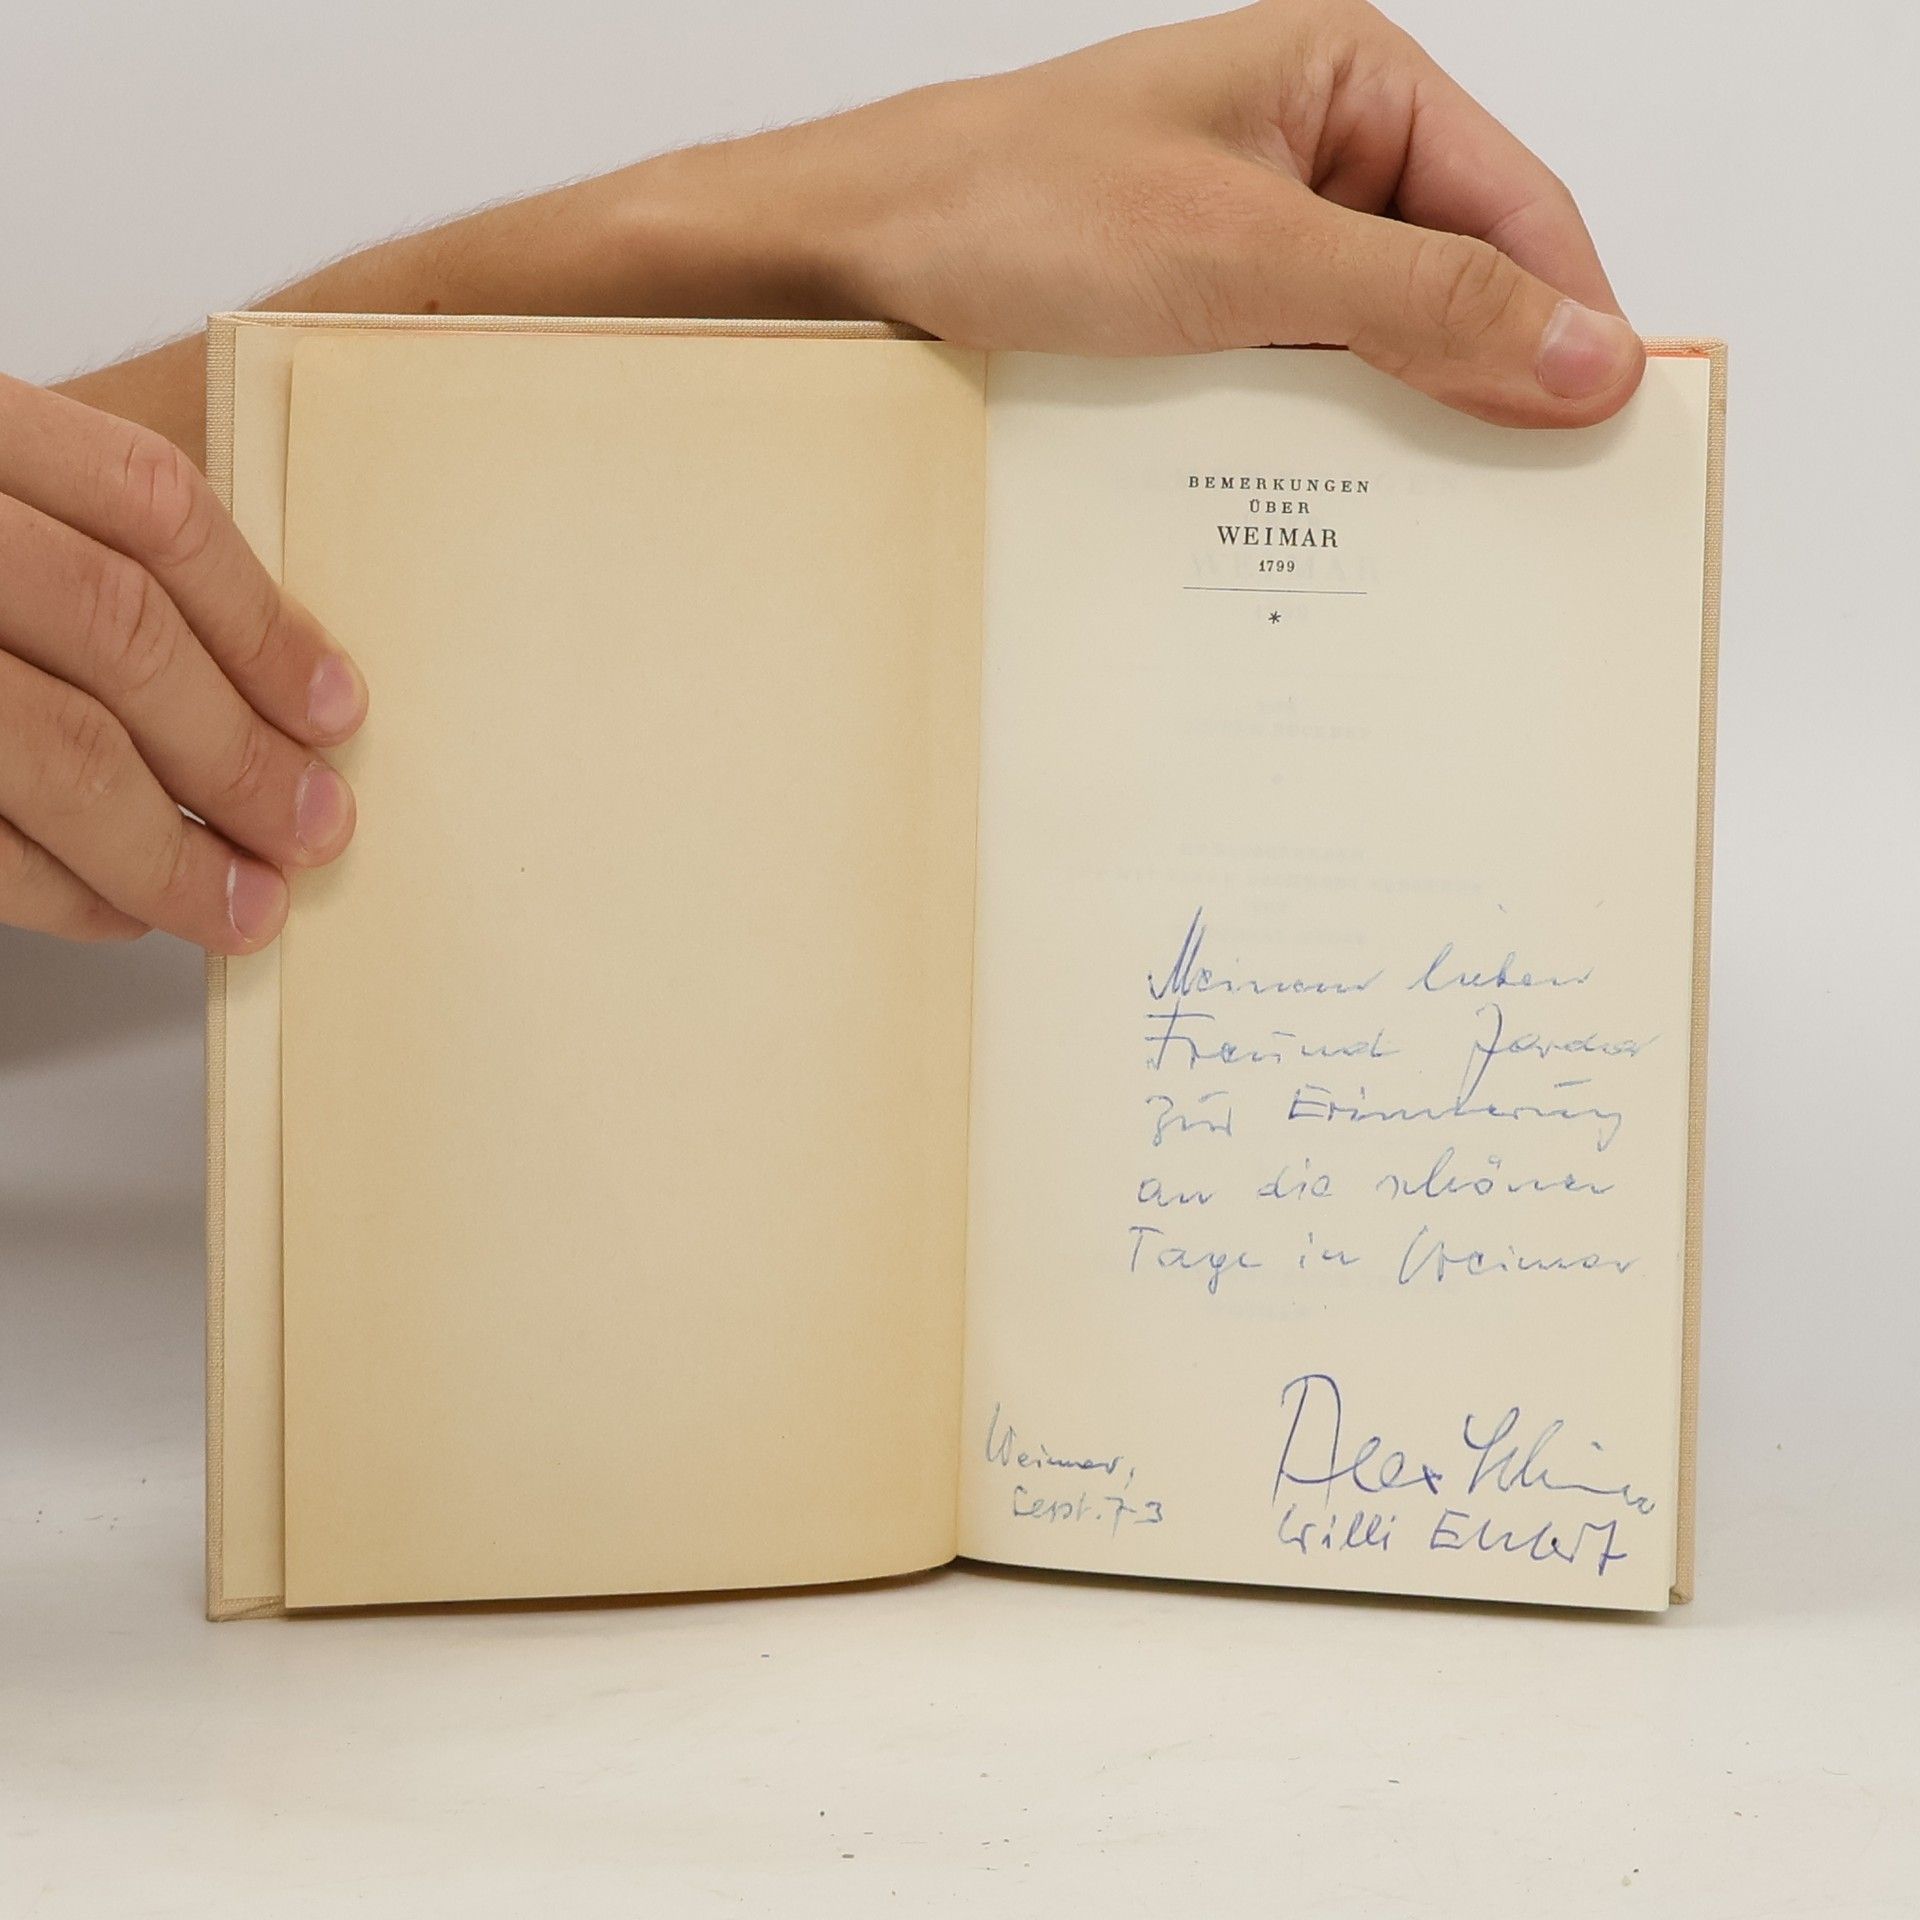 BEMERKUNGEN
ÜBER
WEIMAR
1799
*
Meinem lieben
Freund Jarda
zur Erinnerung
an die schönen
Tage in Weimar
Weimar,
Sept. 73
Alex
Willi Ehlert